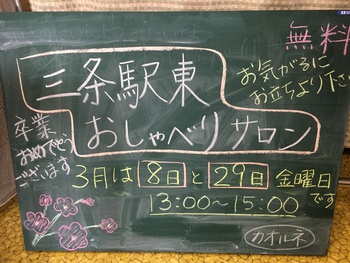 無料
三条駅東
おしゃべりサロン
お気がるに
お立ちより下さい
卒業
おめでとう
ございます
3月は8日と29日金曜日です
13:00〜15:00
カオルネ